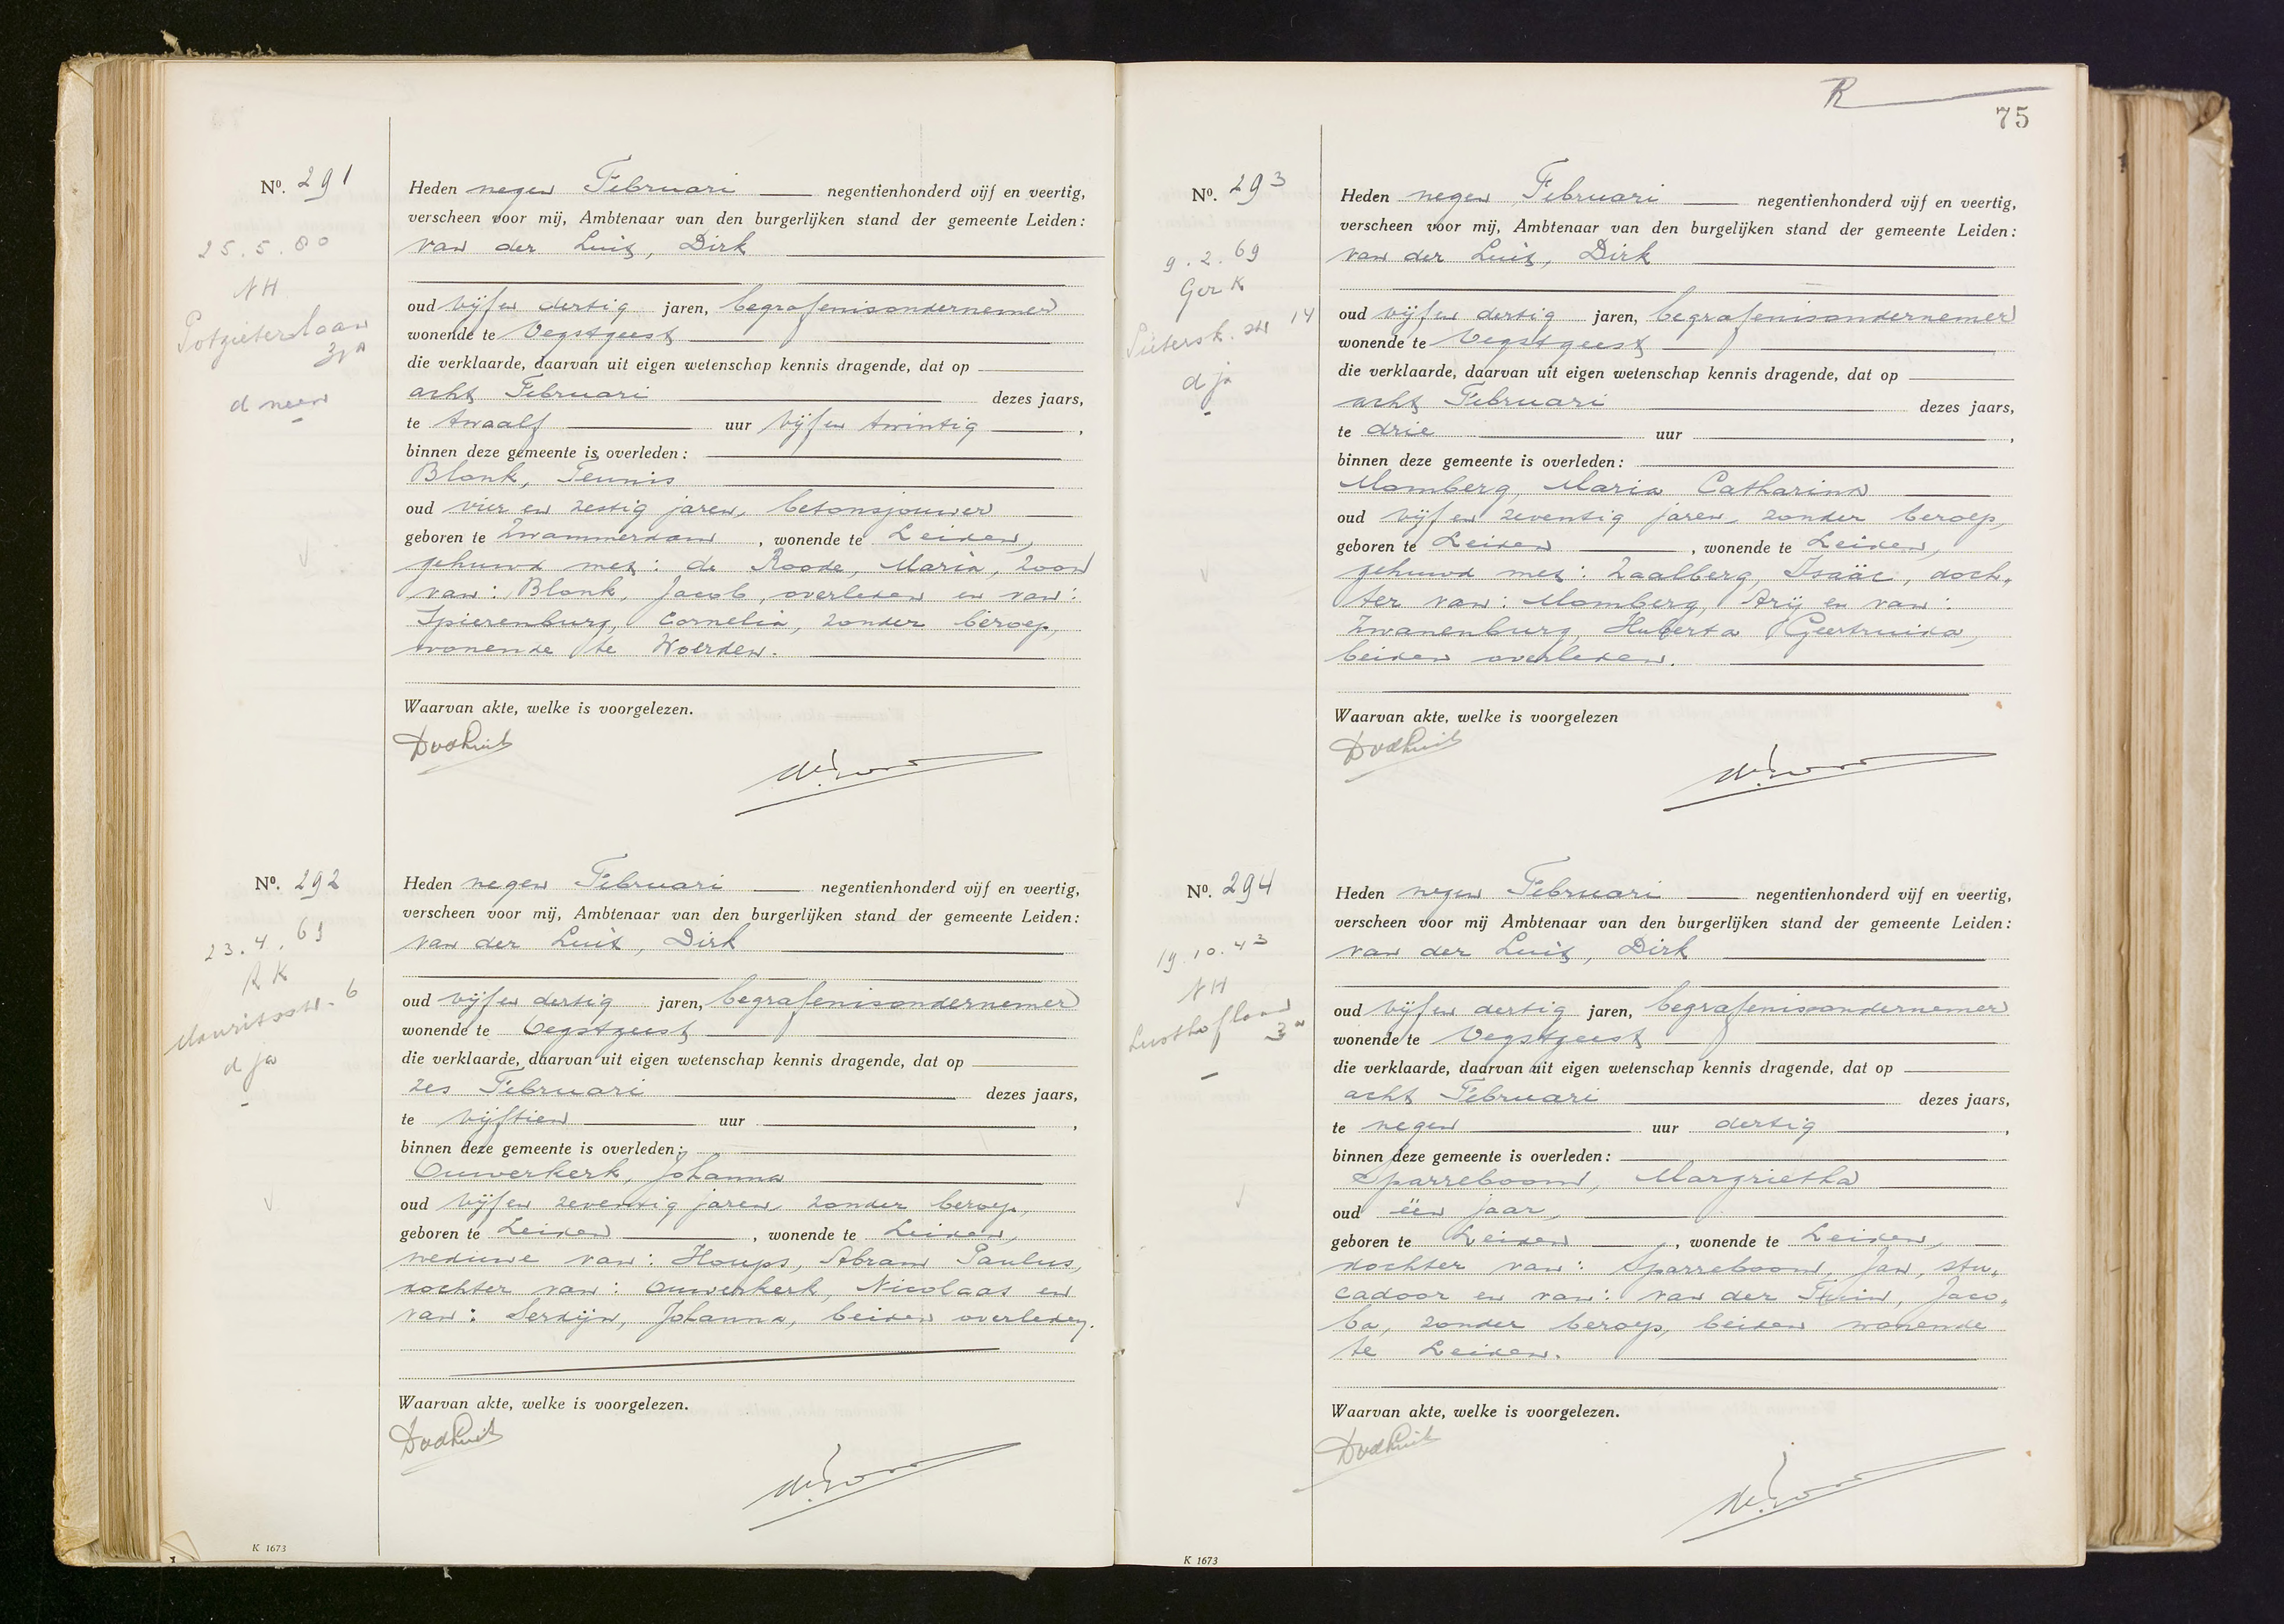 Nº. 291
25.5.80
NH
Potgieterslaan
d neen
Heden negen Februari negentienhonderd vijf en veertig,
verscheen voor mij, Ambtenaar van den burgerlijken stand der gemeente Leiden:
van der Luit, Dirk
oud vijf en dertig jaren, begrafenisondernemer
wonende te Oegstgeest
die verklaarde, daarvan uit eigen wetenschap kennis dragende, dat op
acht Februari dezes jaars,
te twaalf uur vijf en twintig,
binnen deze gemeente is overleden:
Blonk, Teunis
oud vier en zestig jaren, betonsjouwer
geboren te Zwammerdam, wonende te Leiden,
gehuwd met: de Roode, Maria, zoon
van: Blonk, Jacob, overleden en van:
Spierenburg, Cornelia, zonder beroep,
wonende te Woerden.
Waarvan akte, welke is voorgelezen.
DvdLuit
Nº. 292
23.4.69
RK
Mauritsstr. 6
d ja
Heden negen Februari negentienhonderd vijf en veertig,
verscheen voor mij, Ambtenaar van den burgerlijken stand der gemeente Leiden:
van der Luit, Dirk
oud vijf en dertig jaren, begrafenisondernemer
wonende te Oegstgeest
die verklaarde, daarvan uit eigen wetenschap kennis dragende, dat op
zes Februari dezes jaars,
te vijftien uur,
binnen deze gemeente is overleden:
Ouwerkerk, Johanna
oud vijf en zeventig jaren, zonder beroep,
geboren te Leiden, wonende te Leiden,
weduwe van: Houps, Abram Paulus,
dochter van: Ouwerkerk, Nicolaas en
van: Serdijn, Johanna, beiden overleden.
Waarvan akte, welke is voorgelezen.
DvdLuit
K 1673
R
75
Nº. 293
9.2.69
Ger K
14
d ja
Heden negen Februari negentienhonderd vijf en veertig,
verscheen voor mij, Ambtenaar van den burgelijken stand der gemeente Leiden:
van der Luit, Dirk
oud vijf en dertig jaren, begrafenisondernemer
wonende te Oegstgeest
die verklaarde, daarvan uit eigen wetenschap kennis dragende, dat op
acht Februari dezes jaars,
te drie uur,
binnen deze gemeente is overleden:
Momberg, Maria Catharina
oud vijf en zeventig jaren, zonder beroep,
geboren te Leiden, wonende te Leiden,
gehuwd met: Zaalberg, Isaäc, doch„
ter van: Momberg, Arij en van:
Zwanenburg, Huberta Geertruida,
beiden overleden.
Waarvan akte, welke is voorgelezen
DvdLuit
Nº. 294
19.10.43
NH
Lusthoflaan
3a
Heden negen Februari negentienhonderd vijf en veertig,
verscheen voor mij Ambtenaar van den burgerlijken stand der gemeente Leiden:
van der Luit, Dirk
oud vijf en dertig jaren, begrafenisondernemer
wonende te Oegstgeest
die verklaarde, daarvan uit eigen wetenschap kennis dragende, dat op
acht Februari dezes jaars,
te negen uur dertig,
binnen deze gemeente is overleden:
Sparreboom, Margrietha
oud één jaar,
geboren te Leiden, wonende te Leiden,
dochter van: Sparreboom, Jan, stu„
cadoor en van: van der Tuin, Jaco„
ba, zonder beroep, beiden wonende
te Leiden.
Waarvan akte, welke is voorgelezen.
DvdLuit
K 1673